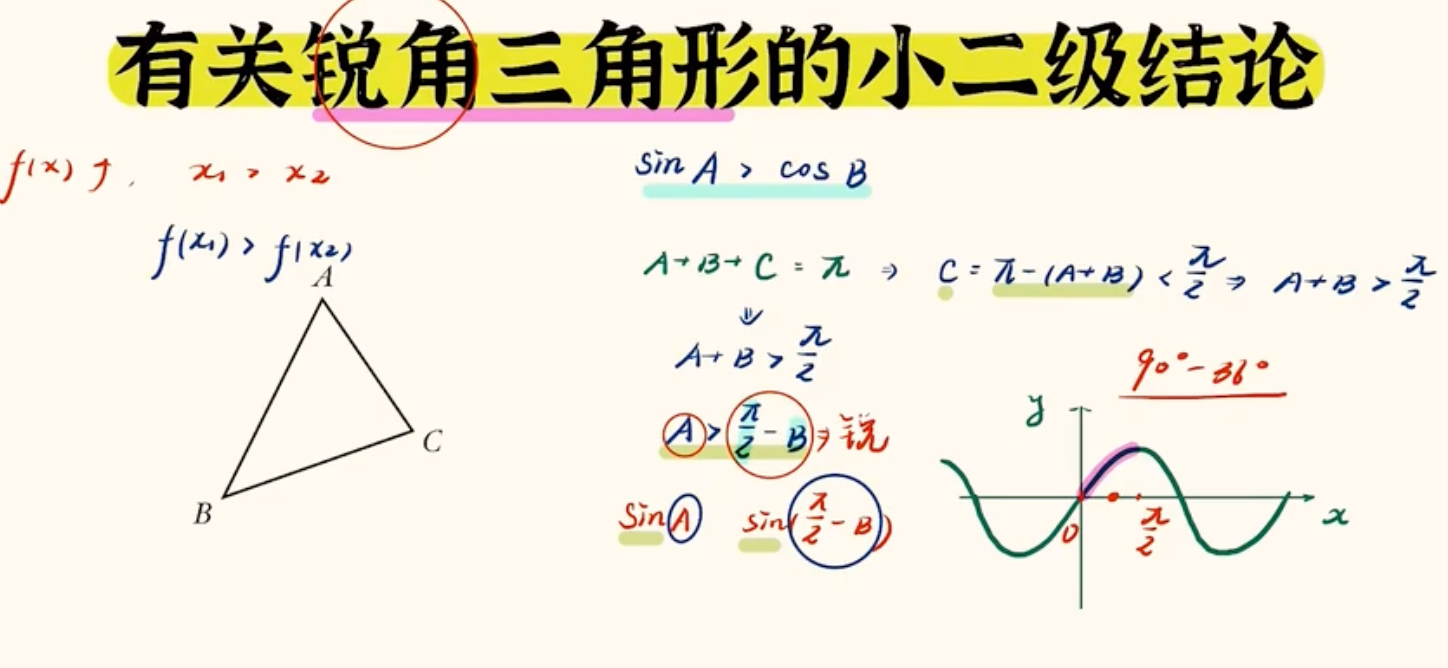 有关锐角三角形的小二级结论
f(x)↑, x₁ > x₂
f(x₁) > f(x₂)
sin A > cos B
A+B+C=π ⇒ C=π-(A+B)<π/2 ⇒ A+B>π/2
⇓
A+B>π/2
A>π/2-B⇒锐
sin A sin(π/2-B)
90°-36°
A
B
C
y
0
π/2
x